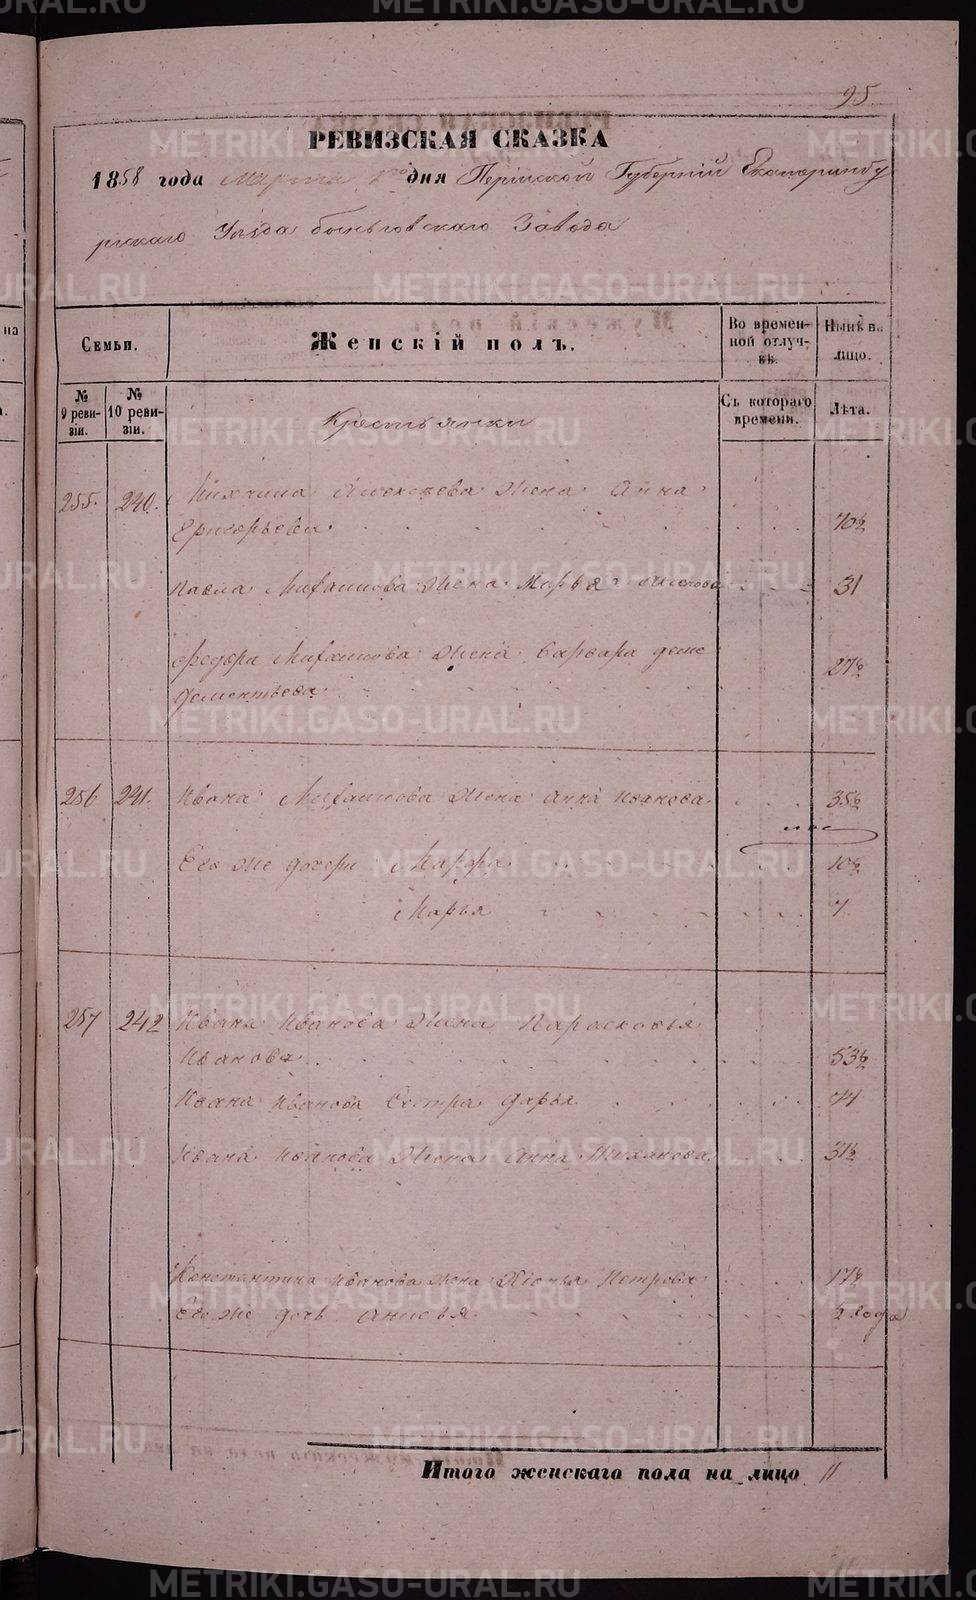 95
РЕВИЗСКАЯ СКАЗКА
1858 года Марта дня Пермской Губерніи Екатеринбу
ргскаго Уѣзда Завода
Семьи.
Женскій полъ.
Во времен-
ной отлуч-
кѣ.
Нынѣ на
лицо.
№
9 реви-
зіи.
№
10 реви-
зіи.
Съ котораго
времени.
Лѣта.
Крестьянки
255. 240. Алексѣева жена Анна
Григорьева 70½
Павла Михаилова жена Марья 31
Федора Михаилова жена Варвара
Дементьева 27½
256 241. Ивана Михаилова жена Анна Иванова 35½
Его же дочери Марфа 10½
Марья 7
257 242 Ивана Иванова жена Парасковья
Иванова 53½
Ивана Иванова Сестра Дарья 44
Ивана Иванова жена Анна 31½
Константина Иванова жена Хіонья Петрова 17½
Его же дочь Анисья года
Итого женскаго пола на лицо 11
METRIKI.GASO-URAL.RU